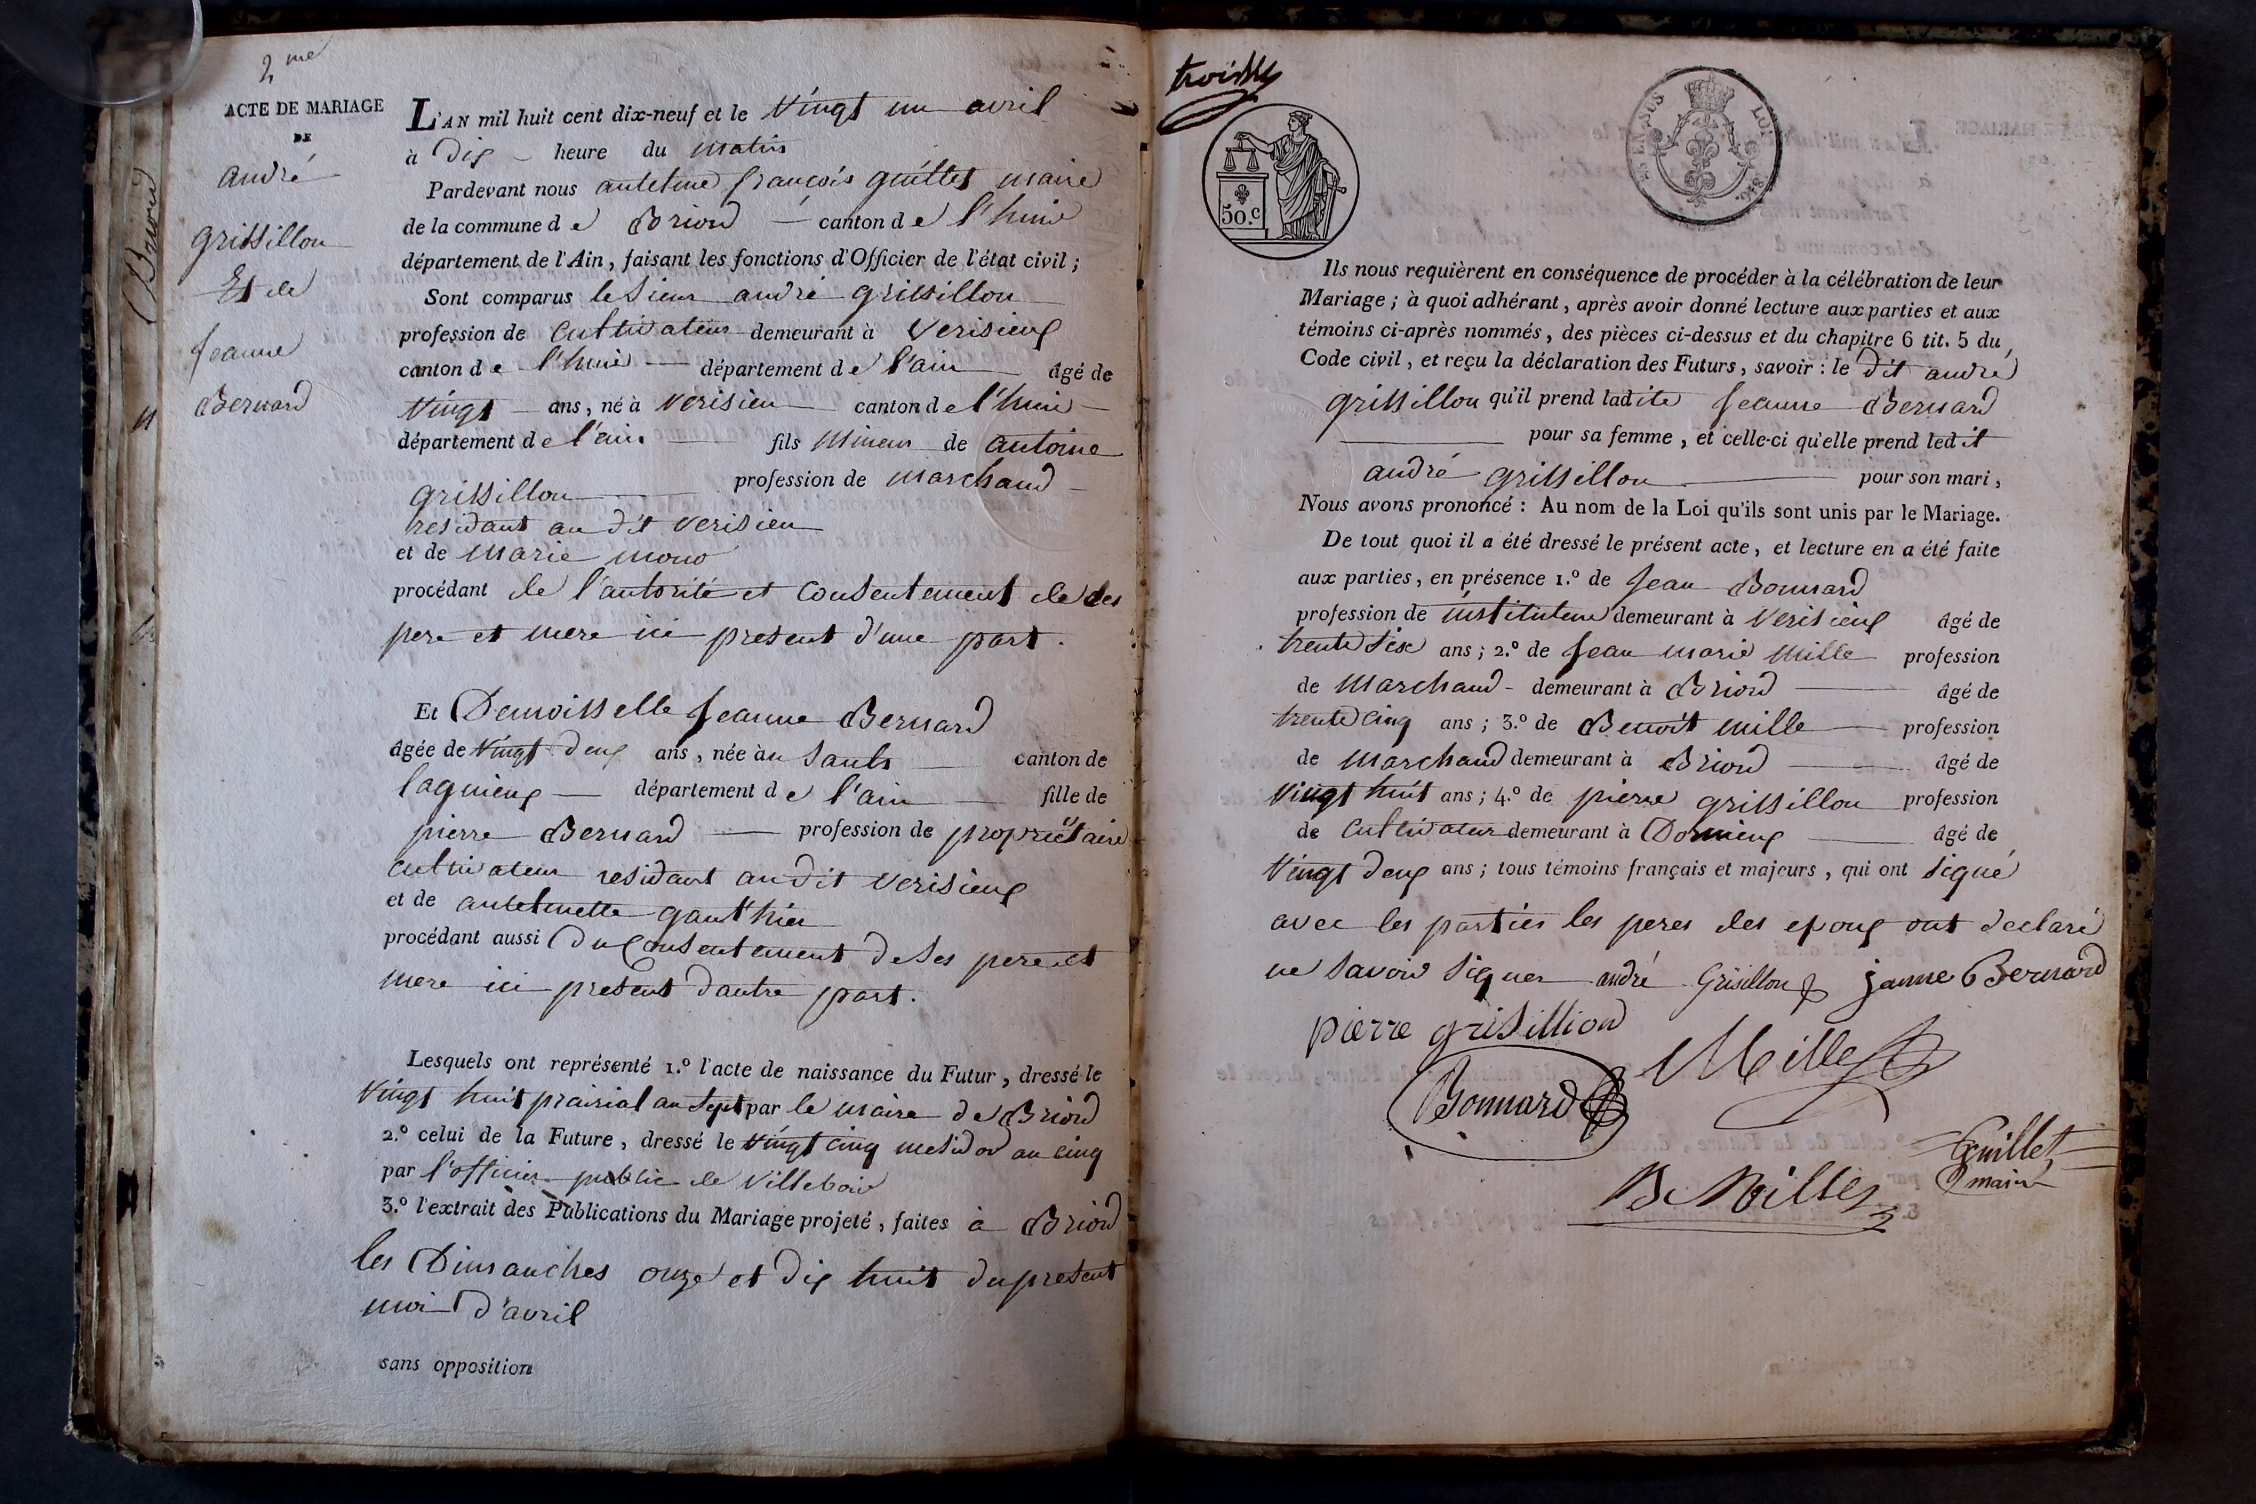 2me
ACTE DE MARIAGE
DE
andré
grissillon
Et de
Jeanne
Bernard
L'AN mil huit cent dix-neuf et le vingt un avril
à dix heure du matin
Pardevant nous antelme françois guillet maire
de la commune de Briord canton de l'huis
département de l'Ain, faisant les fonctions d'Officier de l'état civil;
Sont comparus le sieur andré grissillon
profession de cultivateur demeurant à verisieux
canton de l'huis département de l'ain âgé de
vingt ans, né à verisieu canton de l'huis
département de l'ain fils mineur de antoine
grissillon profession de marchand
residant au dit verisieu
et de marie mono
procédant de l'autorité et consentement de ses
pere et mere ici present d'une part.
Et Demoisselle Jeanne Bernard
âgée de vingt deux ans, née au Sault canton de
lagnieux département de l'ain fille de
pierre Bernard profession de propriétaire
cultivateur residant audit verisieux
et de antelmette gauthier
procédant aussi du consentement de ses pere et
mere ici present dautre part.
Lesquels ont représenté 1.º l'acte de naissance du Futur, dressé le
vingt huit prairial an sept par le maire de Briord
2.º celui de la Future, dressé le vingt cinq mesidor an cinq
par l'officier public de villebois
3.º l'extrait des Publications du Mariage projeté, faites à Briord
les Dimanches onze et dix huit du present
moi d'avril
sans opposition
50.c
LOI 1816.
Ils nous requièrent en conséquence de procéder à la célébration de leur
Mariage; à quoi adhérant, après avoir donné lecture aux parties et aux
témoins ci-après nommés, des pièces ci-dessus et du chapitre 6 tit. 5 du
Code civil, et reçu la déclaration des Futurs, savoir: le dit andré
grissillon qu'il prend ladite Jeanne Bernard
pour sa femme, et celle-ci qu'elle prend ledit
andré grissillon pour son mari,
Nous avons prononcé: Au nom de la Loi qu'ils sont unis par le Mariage.
De tout quoi il a été dressé le présent acte, et lecture en a été faite
aux parties, en présence 1.º de Jean Bonnard
profession de instituteur demeurant à verisieux âgé de
trente six ans; 2.º de Jean marie mille profession
de marchand demeurant à Briord âgé de
trente cinq ans; 3.º de Benoit mille profession
de marchand demeurant à Briord âgé de
vingt huit ans; 4.º de pierre grissillon profession
de cultivateur demeurant à Dornieux âgé de
vingt deux ans; tous témoins français et majeurs, qui ont signé
avec les parties les peres des epoux ont declaré
ne savoir signer andré Grisillon janne Bernard
pierre grisilliond
Mille
Bonnard
Guillet
maire
B Mille